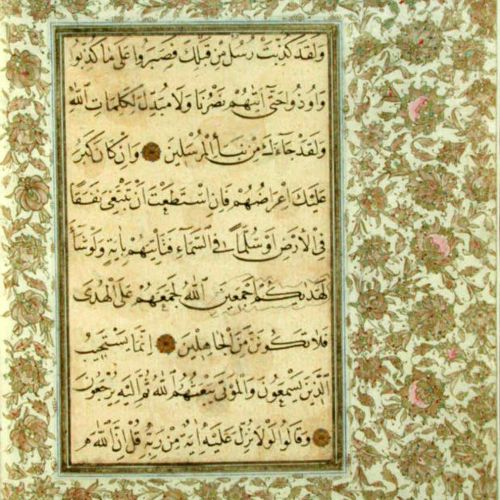 وَلَقَدْ كُذِّبَتْ رُسُلٌ مِنْ قَبْلِكَ فَصَبَرُوا عَلٰى مَا كُذِّبُوا
وَاُوذُوا حَتّٰى اَتٰيهُمْ نَصْرُنَا وَلَا مُبَدِّلَ لِكَلِمَاتِ اللّٰهِ
وَلَقَدْ جَاءَكَ مِنْ نَبَأِ الْمُرْسَلِينَ وَاِنْ كَانَ كَبُرَ
عَلَيْكَ اِعْرَاضُهُمْ فَاِنِ اسْتَطَعْتَ اَنْ تَبْتَغِيَ نَفَقًا
فِي الْاَرْضِ اَوْ سُلَّمًا فِي السَّمَاءِ فَتَأْتِيَهُمْ بِاٰيَةٍ وَلَوْ شَاءَ
لَهَدٰيكُمْ اَجْمَعِينَ اللّٰهُ لَجَمَعَهُمْ عَلَى الْهُدٰى
فَلَا تَكُونَنَّ مِنَ الْجَاهِلِينَ اِنَّمَا يَسْتَجِيبُ
الَّذِينَ يَسْمَعُونَ وَالْمَوْتٰى يَبْعَثُهُمُ اللّٰهُ ثُمَّ اِلَيْهِ يُرْجَعُونَ
وَقَالُوا لَوْلَا نُزِّلَ عَلَيْهِ اٰيَةٌ مِنْ رَبِّهِ قُلْ اِنَّ اللّٰهَ